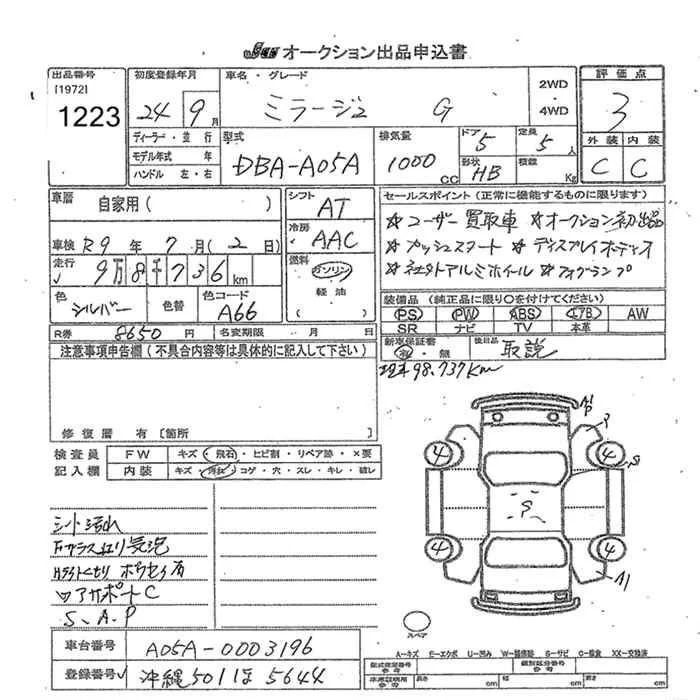 JU オークション出品申込書
出品番号 [1972] 1223
初度登録年月 24 9月
車名・グレード ミラージュ G
2WD・4WD
評価点 3
外装 C 内装 C
ディーラー・並行
モデル年式 年
ハンドル 左・右
型式 DBA-A05A
排気量 1000 CC
ドア 5 定員 5人
形状 HB 積載 Kg
車歴 自家用( )
車検 R9年7月(2日)
走行 9万8千736km
色 シルバー 色替 色コード A66
シフト AT
冷房 AAC
燃料 ガソリン 軽油 ( )
セールスポイント(正常に機能するものに限ります)
☆ユーザー買取車 ☆オークション初出品
☆プッシュスタート ☆ディスプレイオーディオ
☆社外アルミホイール ☆フォグランプ
装備品(純正品に限り○を付けてください)
PS PW ABS エアB AW
SR ナビ TV 本革
新車保証書 有・無 後日品 取説
R券 8650円 名変期限 月 日
注意事項申告欄(不具合内容等は具体的に記入して下さい)
現車98.737Km
修復歴 有 [箇所
検査員記入欄
FW キズ・飛石・ヒビ割・リペア跡・×要
内装 キズ・汚れ・コゲ・穴・スレ・キレ・破レ
シート汚れ
Fガラス 気泡
Hライトくもり 有
コアサポートC
S、A、P
A1 P
P
S
4 4
S
4 4
A1
スペア
車台番号 A05A-0003196
登録番号 沖縄501ほ5644
A-キズ E-エクボ U-凹み W-補修跡 S-サビ C-腐食 XX-交換済
型式指定番号 参考 類別区分番号 参考
車庫証明用 参考 長さ cm 幅 cm 高さ cm